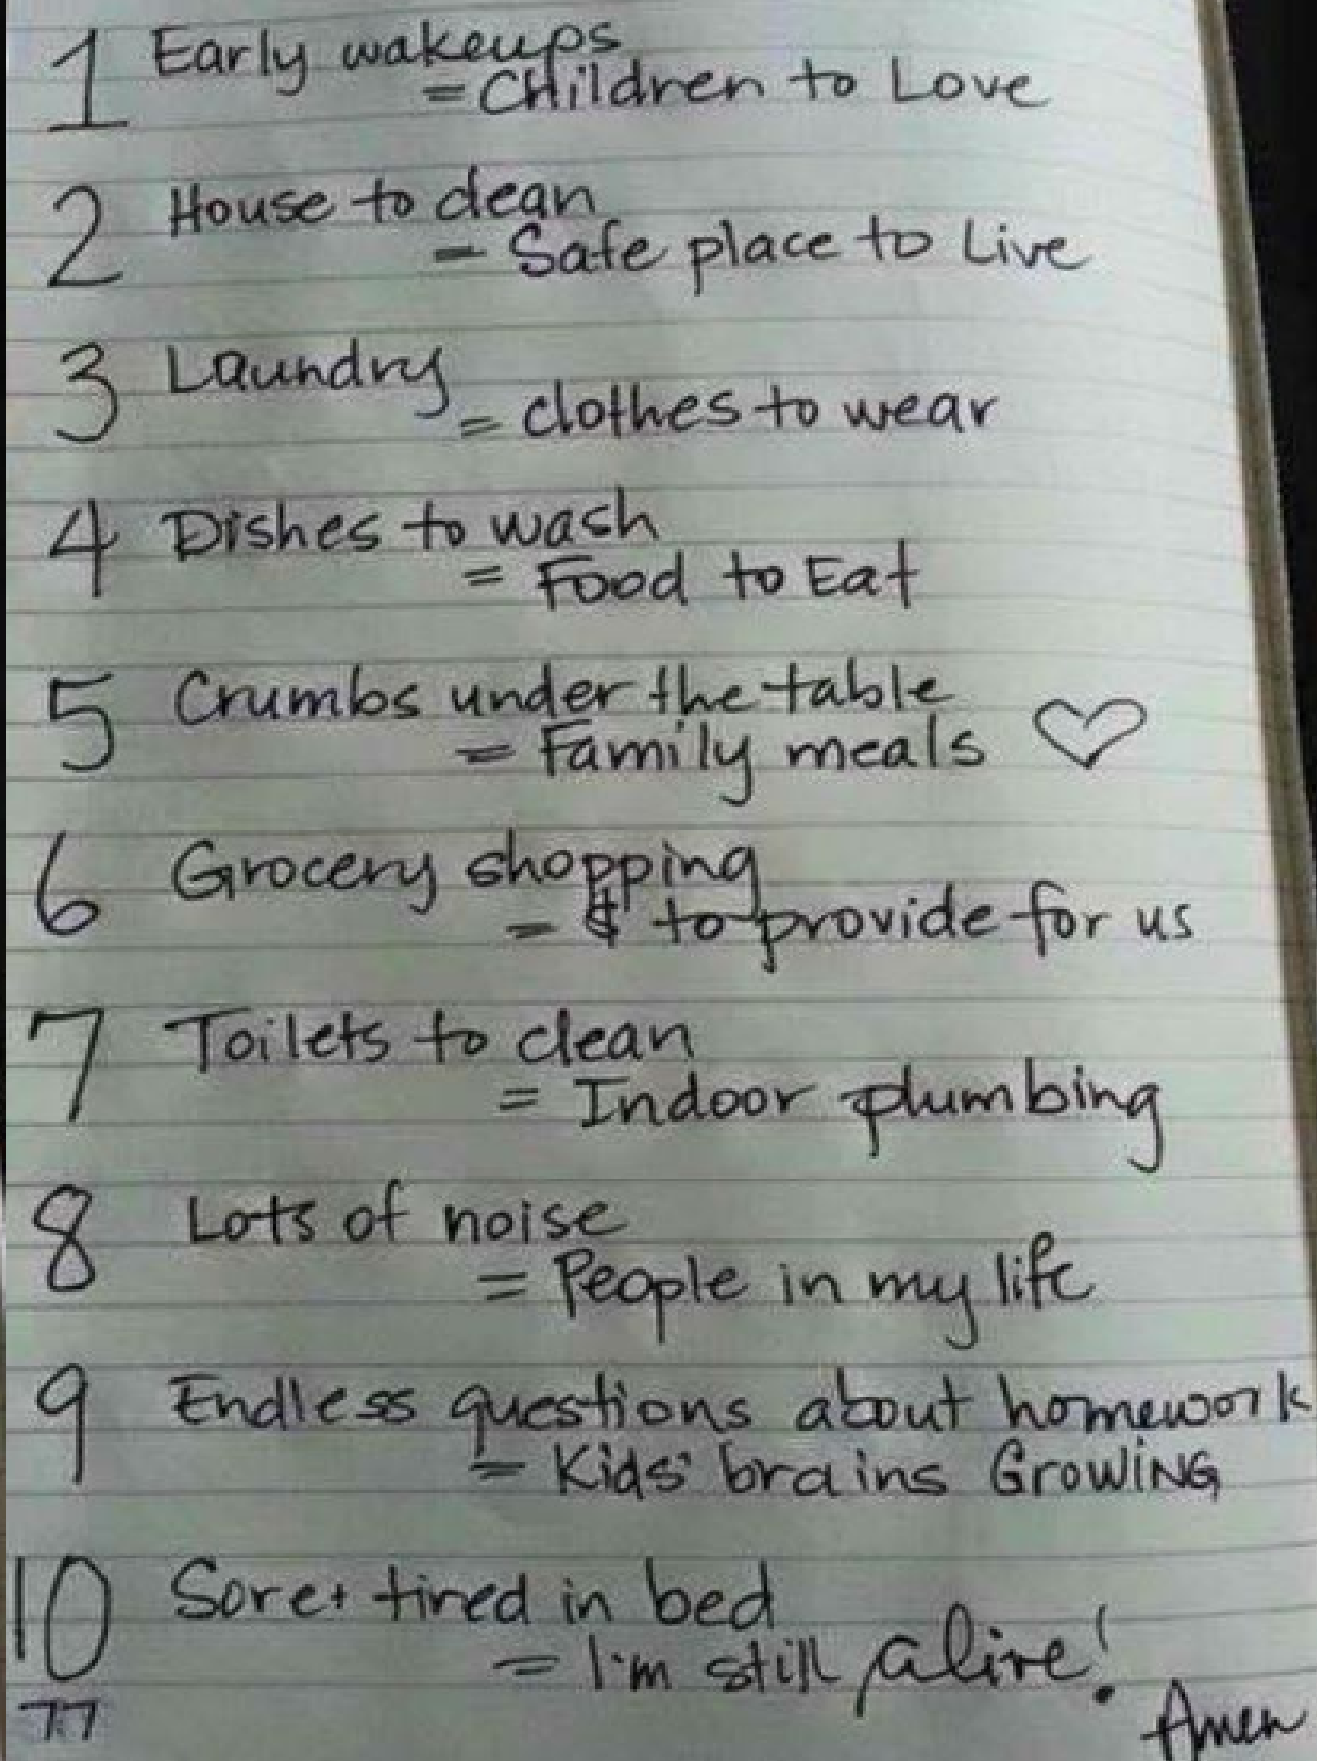 1 Early wakeups
= Children to Love
2 House to clean
= Safe place to Live
3 Laundry
= clothes to wear
4 Dishes to wash
= Food to Eat
5 Crumbs under the table
= Family meals
6 Grocery shopping
= $ to provide for us
7 Toilets to clean
= Indoor plumbing
8 Lots of noise
= People in my life
9 Endless questions about homework
= Kids' brains GROWING
10 Sore + tired in bed
= I'm still alive!
Amen